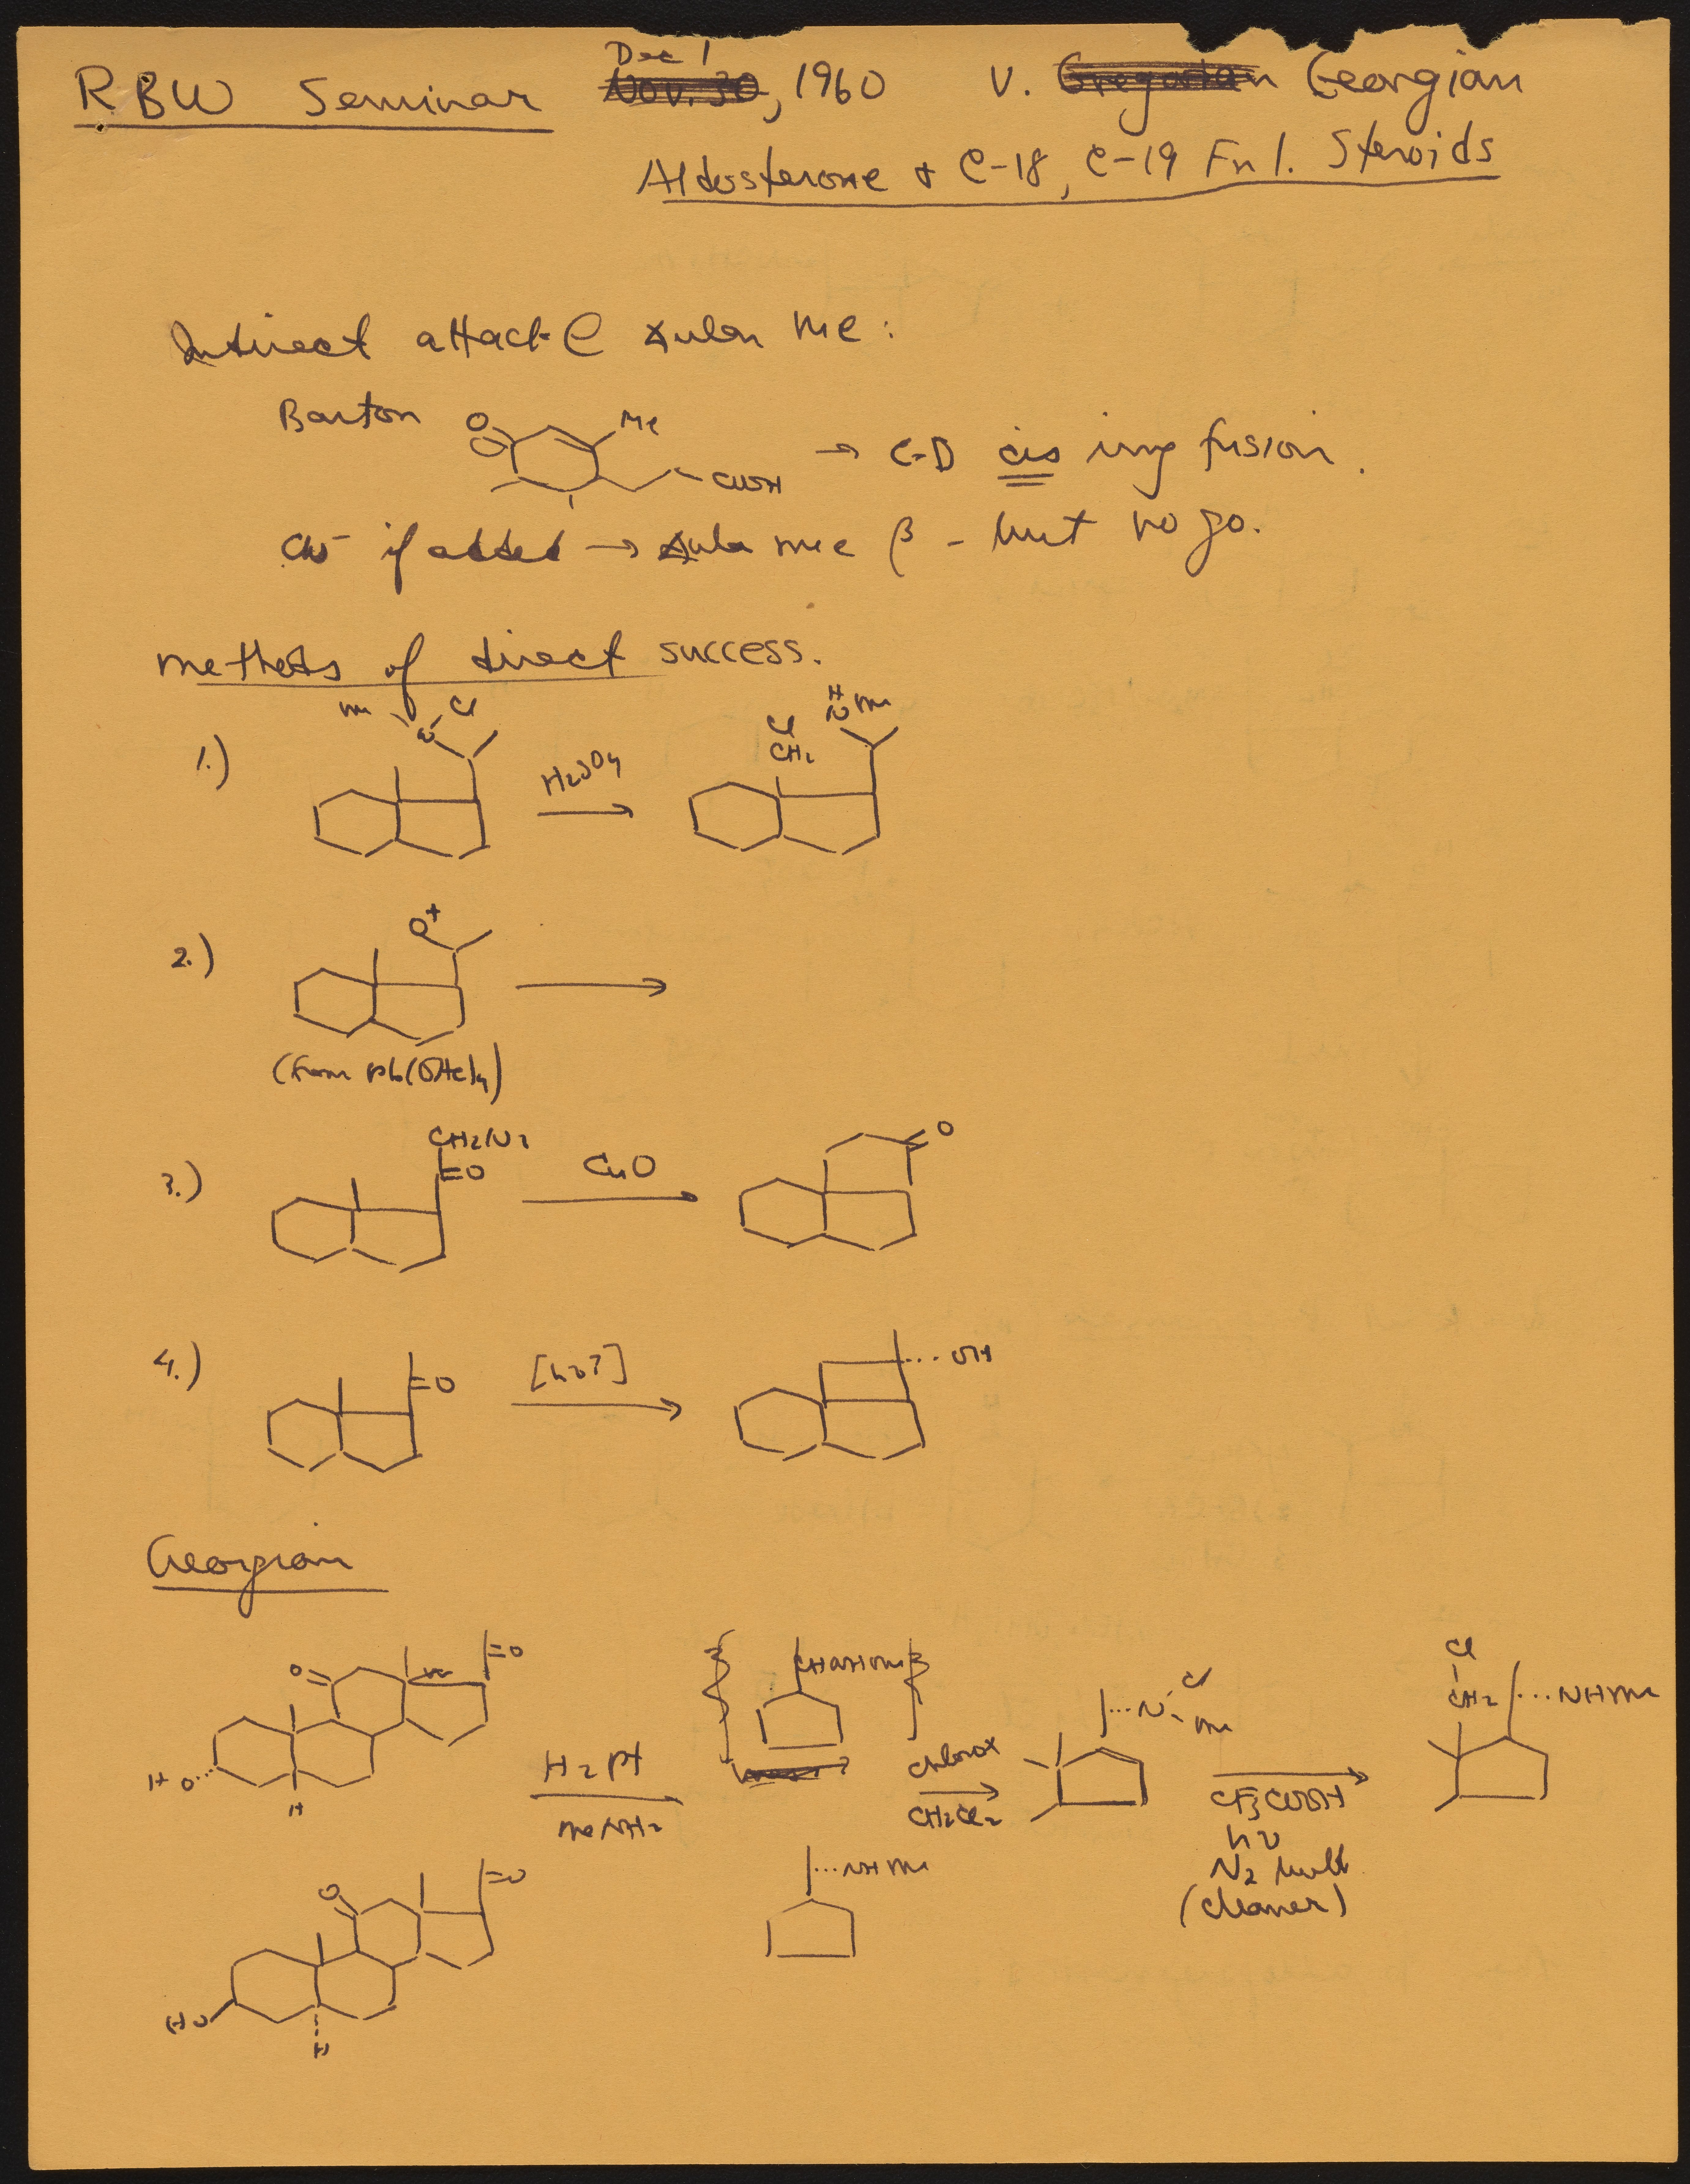 RBW Seminar Dec 1 Nov. 30, 1960 V. Gregorian Georgian
Aldosterone + C-18, C-19 Fnl. Steroids
Indirect attack @ ∡ular me:
Barton
O Me COOH → C-D cis ring fusion.
CN⁻ if added → ∡ular me β - but no go.
methods of direct success.
1.) Me N Cl H₂SO₄ Cl CH₂ H N Me
2.) O⁺
(from Pb(OAc)₄)
3.) CHN₂ =O CuO O
4.) =O [hν?] OH
Georgian
O =O HO H
H₂ Pt
MeNH₂
CHOHMe
NHMe
Chlorox
CH₂Cl₂
N Cl Me
CF₃COOH
hν
N₂
(cleaner)
Cl
CH₂ NHMe
O =O HO H